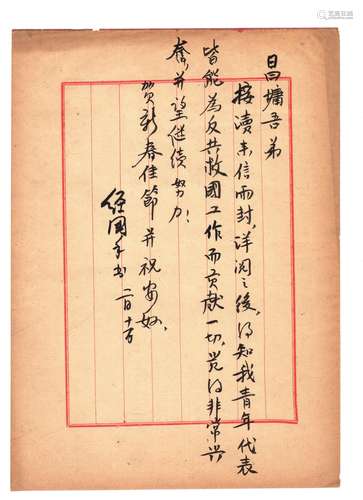 昌墉吾弟
接瀆来信两封,详阅之後,得知我青年代表
皆能為反共救國工作而贡献一切,觉得非常兴
奋,并望继续努力!
贺新春佳節并祝安好。
经國手书 二月十